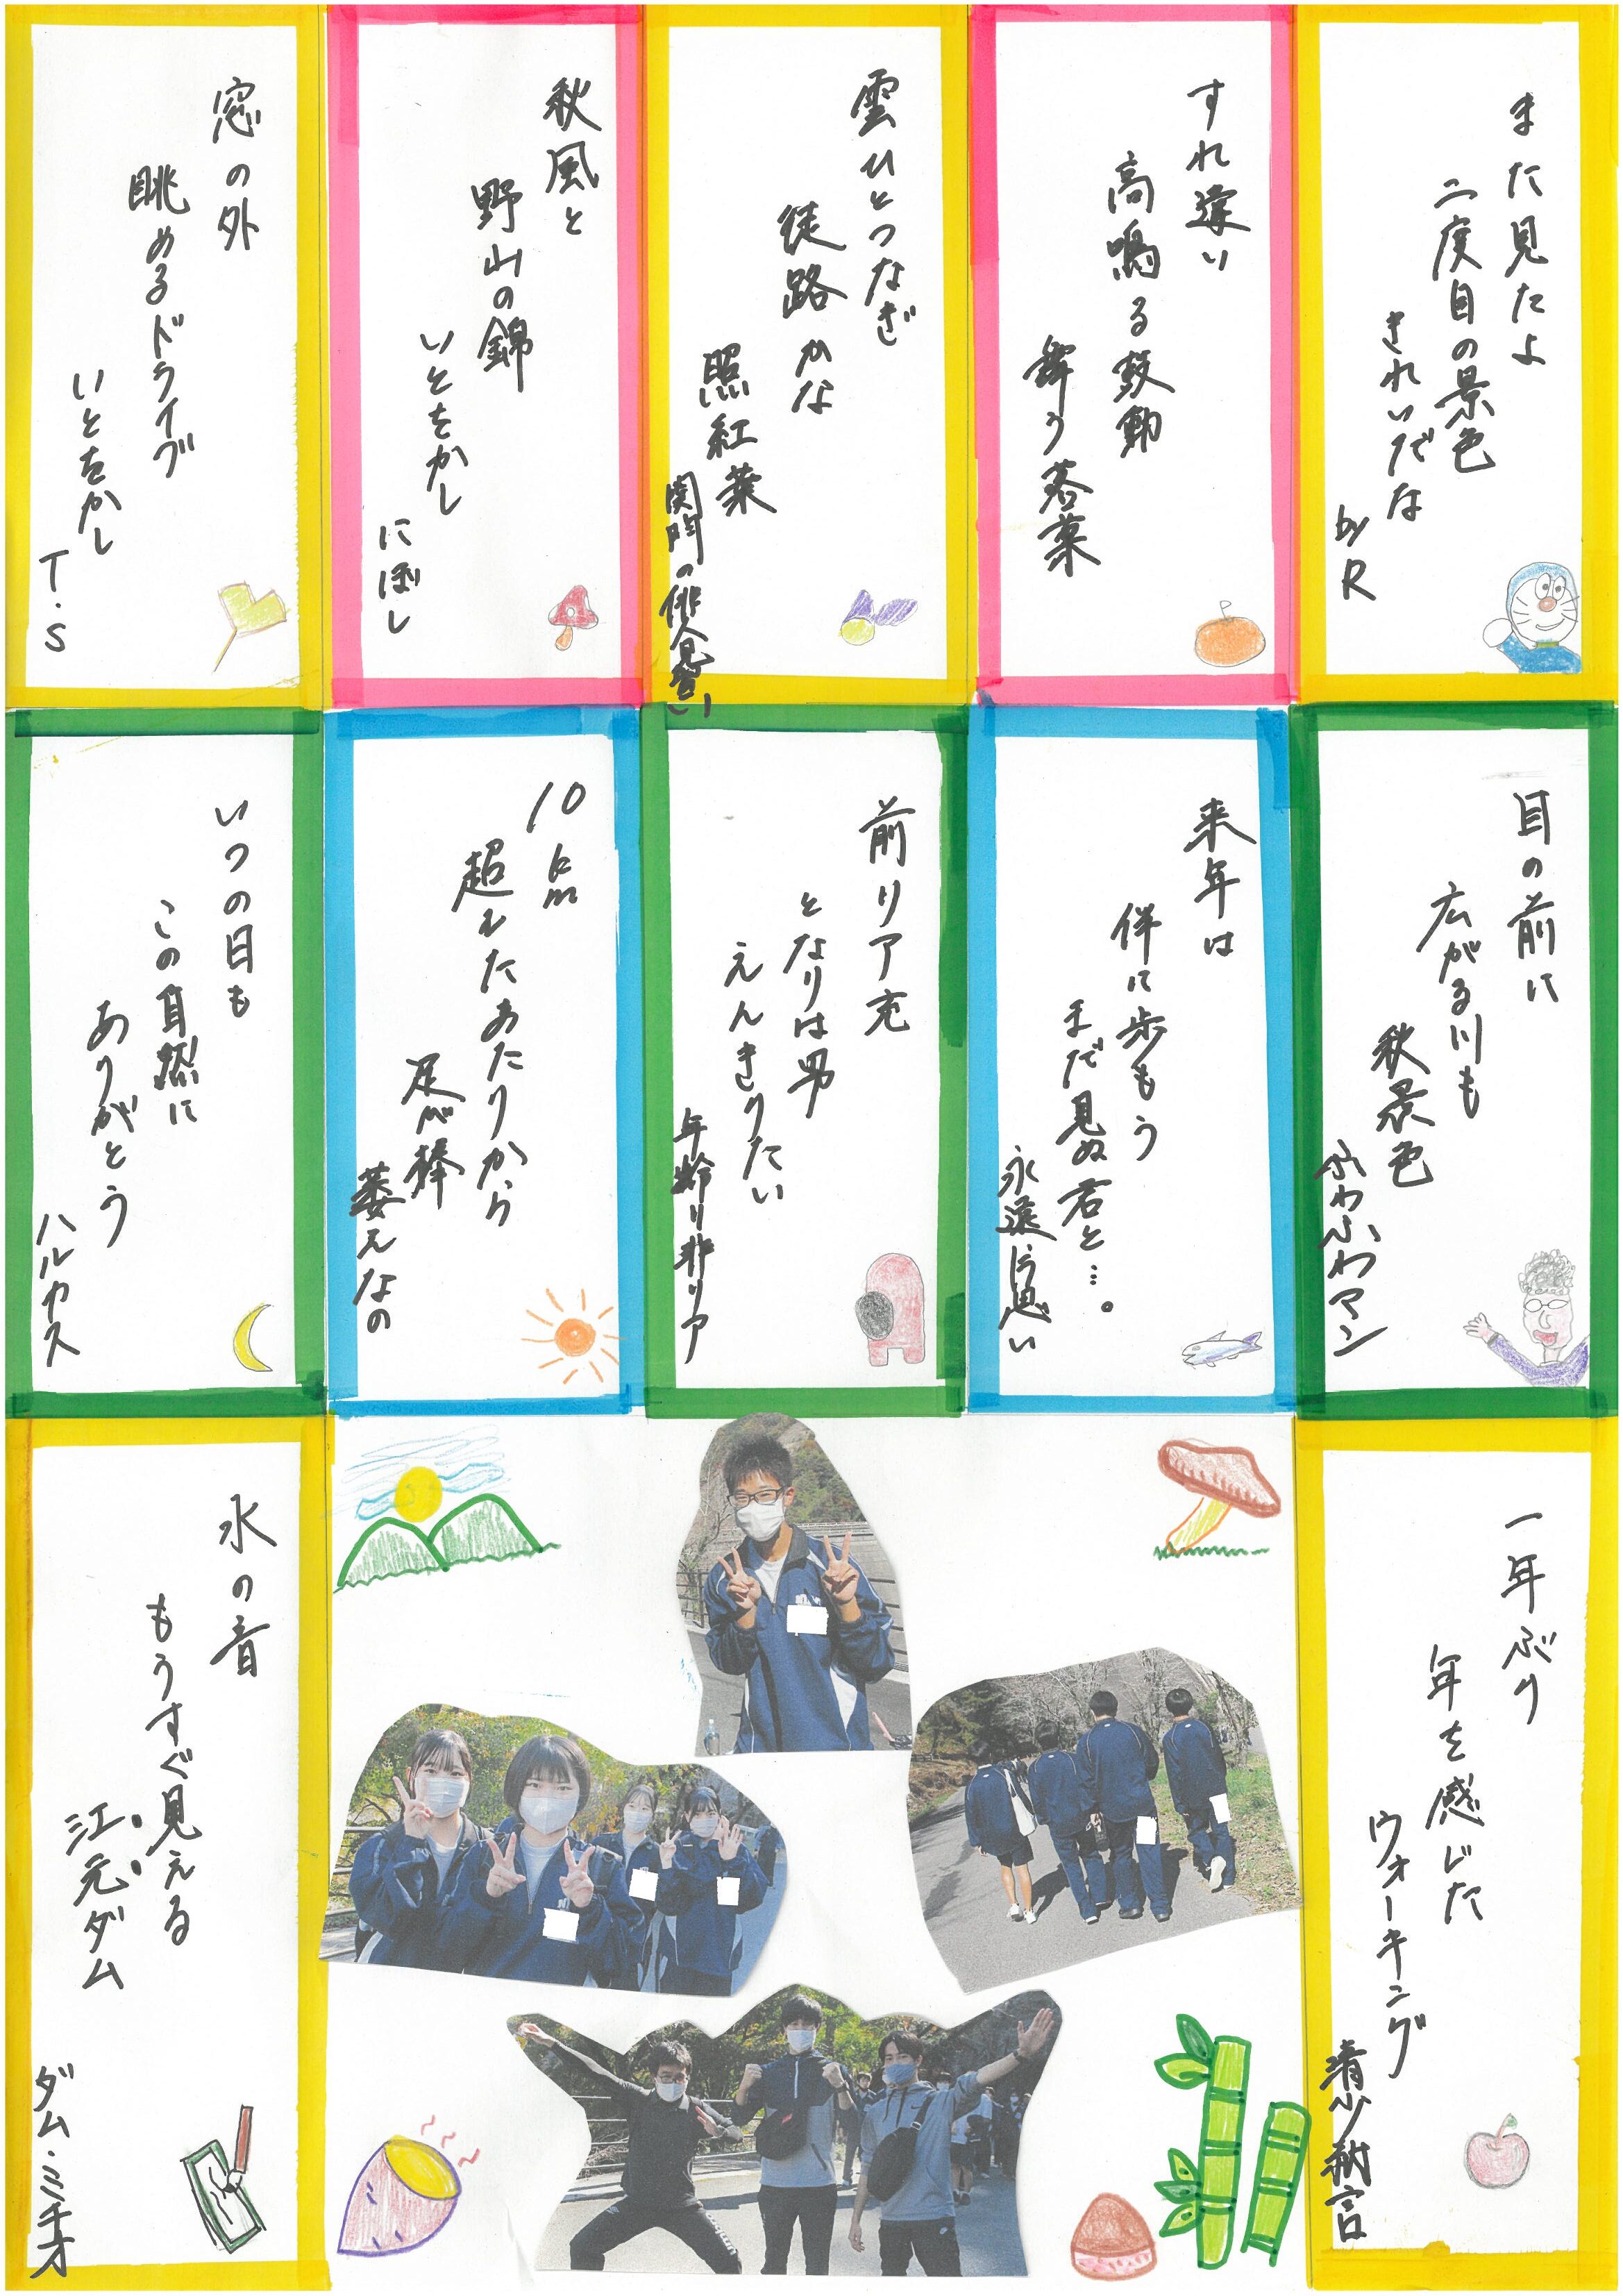 また見たよ
二度目の景色
きれいだな
by R
すれ違い
高鳴る鼓動
舞う落葉
雲ひとつなぎ
徒路かな
照紅葉
関門の俳人見習い
秋風と
野山の錦
いとをかし
にぼし
窓の外
眺めるドライブ
いとをかし
T.S
目の前に
広がる川も
秋景色
ふわふわマン
来年は
伴に歩もう
まだ見ぬ君と…。
永遠に片思い
前リア充
となりは男
えんきりたい
年齢り非リア
10km
超えたあたりから
足が棒
萎えなの
いつの日も
この自然に
ありがとう
ハルカス
一年ぶり
年を感じた
ウォーキング
清少納言
水の音
もうすぐ見える
江元ダム
ダム・ミチオ